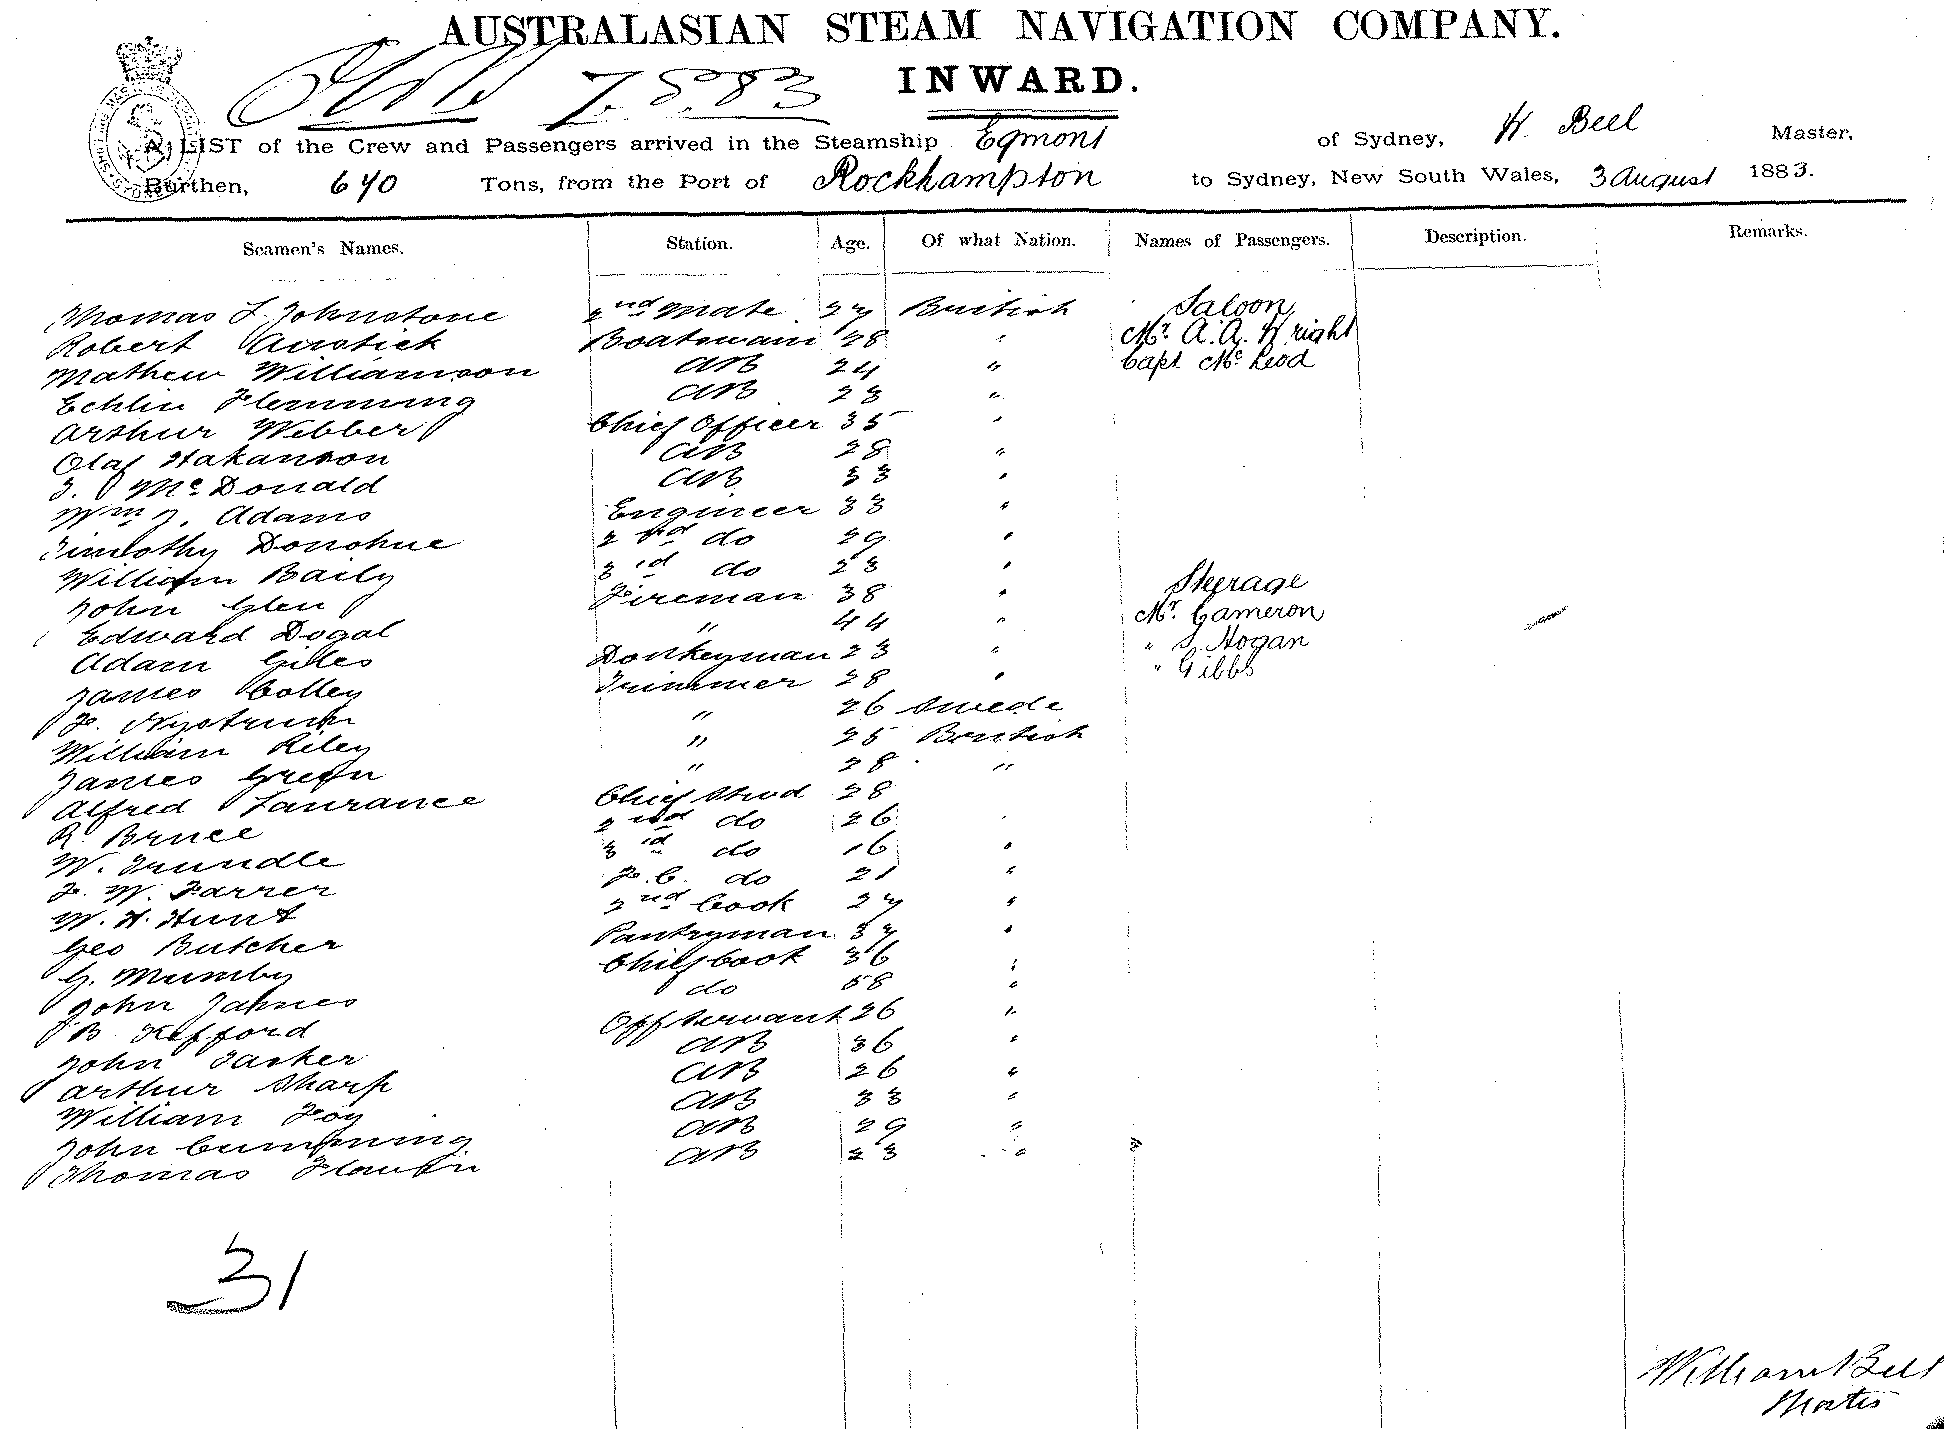 AUSTRALASIAN STEAM NAVIGATION COMPANY.
7.8.83 INWARD.
A LIST of the Crew and Passengers arrived in the Steamship Egmont of Sydney, W Bell Master,
Burthen, 640 Tons, from the Port of Rockhampton to Sydney, New South Wales, 3 August 1883.
Seamen's Names. Station. Age. Of what Nation. Names of Passengers. Description. Remarks.
Thomas L. Johnstone 2nd Mate 27 British Saloon
Robert Anstick Boatswain 28 " Mr. A. A. Wright
Mathew Williamson AB 24 " Capt McLeod
Echlin Flemming AB 23 "
Arthur Webber Chief Officer 35 "
Olaf Hakanson AB 28 "
J. McDonald AB 33 "
Wm J. Adams Engineer 33 "
Timothy Donohue 2nd do 29 "
William Baily 3rd do 23 " Steerage
John Glen Fireman 38 " Mr. Cameron
Edward Dogal " 44 " " S. Hogan
Adam Giles Donkeyman 23 " " Gibbs
James Colley Trimmer 28 "
F. Nystrum " 26 Swede
William Riley " 25 British
James Green " 28 "
Alfred Laurance Chief Stwd 28
R. Bruce 2nd do 26 "
W. Trundle 3rd do 16 "
F. W. Farrer F.C. do 21 "
W. H. Hunt 2nd Cook 27 "
Geo Butcher Pantryman 37 "
G. Mumby Chief Cook 36 "
John James do 58 "
B Kefford Off Servant 26 "
John Tasker AB 36 "
Arthur Sharp AB 26 "
William Foy AB 33 "
John Cumming AB 29 "
Thomas AB 23 "
31
William Bell
Master